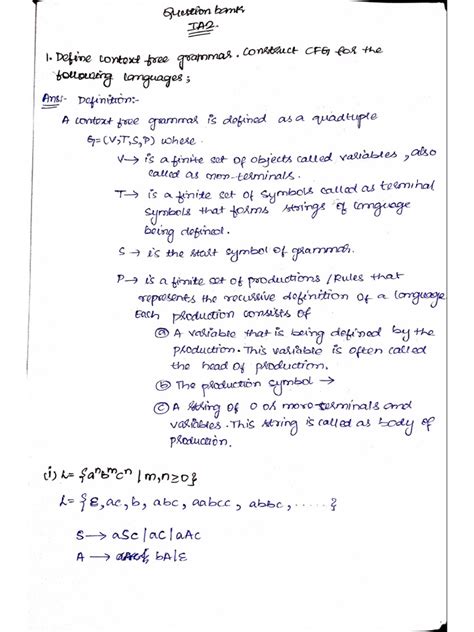 Question bank
IA2
1. Define context free grammar. Construct CFG for the
following languages;
Ans:- Definition:-
A context free grammar is defined as a quadtuple
G=(V,T,S,P) where
V→ is a finite set of objects called variables, also
called as non-terminals.
T→ is a finite set of symbols called as terminal
symbols that forms strings of language
being defined.
S → is the start symbol of grammar.
P→ is a finite set of productions / Rules that
represents the recursive definition of a language
Each production consists of
ⓐ A variable that is being defined by the
production. This variable is often called
the head of production.
ⓑ The production symbol →
ⓒ A string of 0 or more terminals and
variables. This string is called as body of
production.
(i) L= {aⁿbᵐcⁿ | m,n≥0}
L= {ε, ac, b, abc, aabcc, abbc, .....}
S → aSc | ac | aAc
A → bA | ε